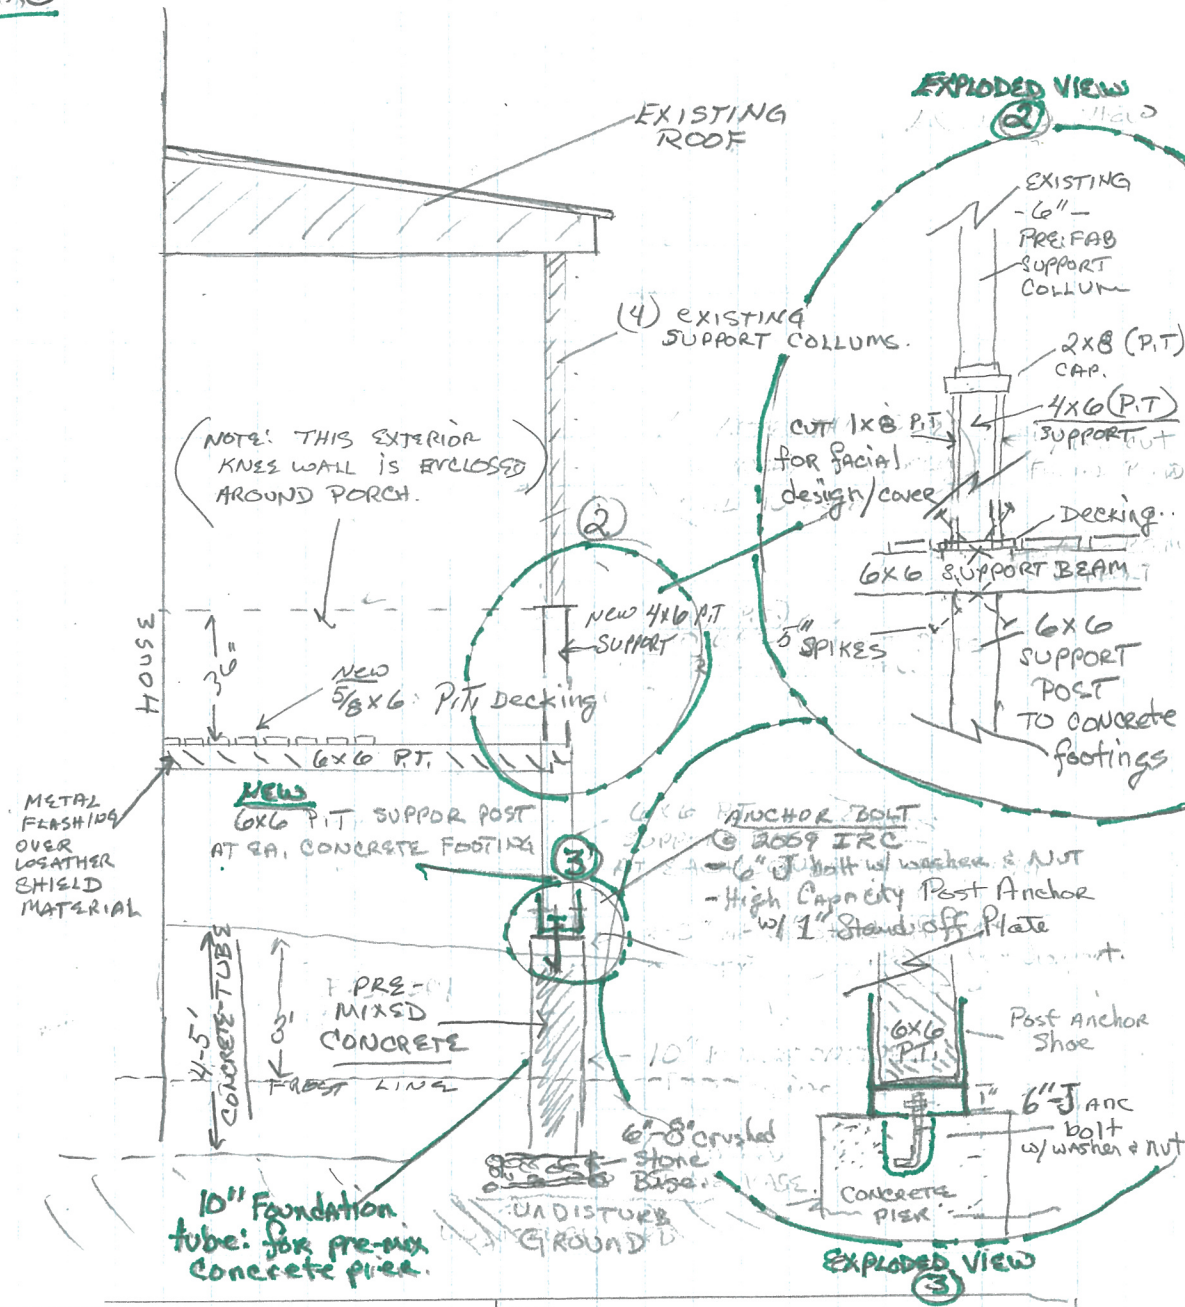 EXPLODED VIEW
2
EXISTING
ROOF
EXISTING
- 6" -
PRE: FAB
SUPPORT
COLLUM
(4) EXISTING
SUPPORT COLLUMS.
2X8 (P.T)
CAP.
4X6 (P.T)
SUPPORT
CUT 1X8 P.T
FOR facial
design/cover
Decking..
6X6 SUPPORT BEAM
5" SPIKES
6X6
SUPPORT
POST
TO CONCRETE
footings
(NOTE: THIS EXTERIOR
KNEE WALL IS ENCLOSED
AROUND PORCH.)
2
NEW 4X6 P.T
SUPPORT
HOUSE
36"
NEW
5/8 X 6 P.T. Decking
6X6 P.T.
METAL
FLASHING
OVER
WEATHER
SHIELD
MATERIAL
NEW
6X6 P.T SUPPOR POST
AT EA. CONCRETE FOOTING
3
ANCHOR BOLT
@ 2009 IRC
- 6" J bolt w/ washer & NUT
- High Capacity Post Anchor
w/ 1" Stand off Plate
4-5'
CONCRETE-TUBE
3'
PRE-
MIXED
CONCRETE
FROST LINE
6"-8" crushed
Stone
Base.
UNDISTURB
GROUND
10" Foundation
tube: for pre-mix
concrete pier.
6X6
P.T.
Post Anchor
Shoe
1"
6"-J ANC
bolt
w/ washer & nut
CONCRETE
PIER
EXPLODED VIEW
3